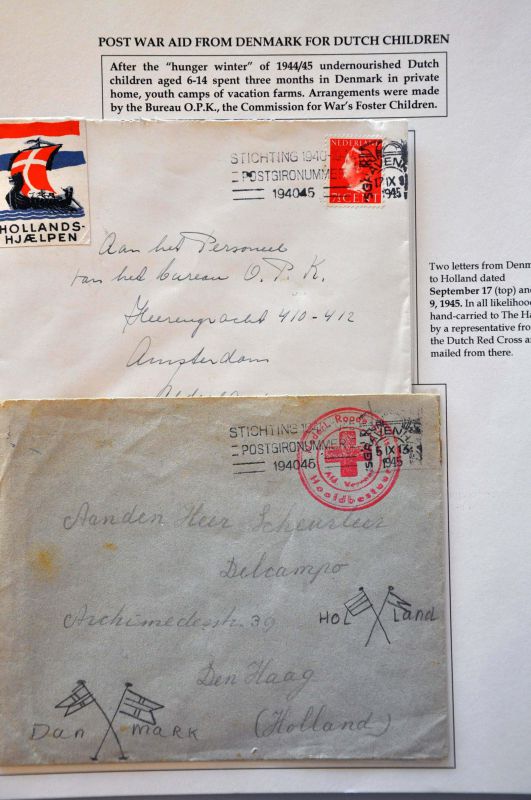 POST WAR AID FROM DENMARK FOR DUTCH CHILDREN
After the "hunger winter" of 1944/45 undernourished Dutch
children aged 6-14 spent three months in Denmark in private
home, youth camps of vacation farms. Arrangements were made
by the Bureau O.P.K., the Commission for War's Foster Children.
HOLLANDS-
HJÆLPEN
STICHTING 1940-
POSTGIRONUMMER
194045
NEDERLAND
7½ CENT
17 IX
1945
Aan het Personeel
van het bureau O.P.K.
Heerengracht 410-412
Amsterdam
Two letters from Denm
to Holland dated
September 17 (top) an
9, 1945. In all likelihoo
hand-carried to The Ha
by a representative fro
the Dutch Red Cross a
mailed from there.
STICHTING
POSTGIRONUMMER
194045
Hoofdbestuur
IX
1945
Aan den Heer Scheurleer
Delcampo
Archimedesstr. 39
Den Haag
(Holland)
HOL Land
Dan MARK